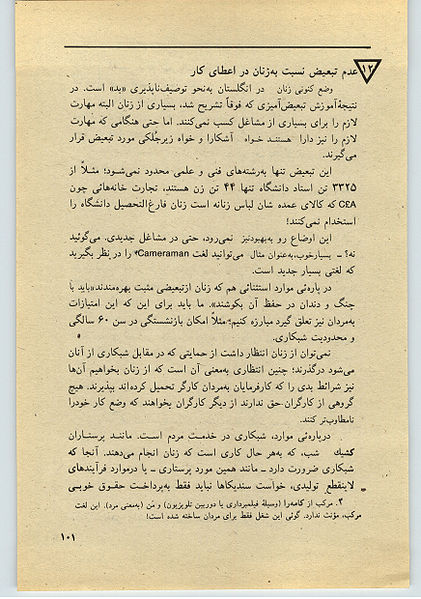 ۱۲ عدم تبعیض نسبت به‌زنان در اعطای کار
وضع کنونی زنان در انگلستان به‌نحو توصیف‌ناپذیری «بد» است. در
نتیجهٔ آموزش تبعیض‌آمیزی که فوقاً تشریح شد، بسیاری از زنان البته مهارت
لازم را برای بسیاری از مشاغل کسب نمی‌کنند. اما حتی هنگامی که مهارت
لازم را نیز دارا هستند خواه آشکارا و خواه زیرجُلکی مورد تبعیض قرار
می‌گیرند.
این تبعیض تنها به‌رشته‌های فنی و علمی محدود نمی‌شود؛ مثلاً از
۳۳۲۵ تن استاد دانشگاه تنها ۴۴ تن زن هستند، تجارت خانه‌هائی چون
C&A که کالای عمده شان لباس زنانه است زنان فارغ‌التحصیل دانشگاه را
استخدام نمی‌کنند!
این اوضاع رو به‌بهبودنیز نمی‌رود، حتی در مشاغل جدیدی. می‌گوئید
نه؟ ـ بسیارخوب، به‌عنوان مثال می‌توانید لغت Cameraman³ را در نظر بگیرید
که لغتی بسیار جدید است.
در پاره‌ئی موارد استثنائی هم که زنان ازتبعیضی مثبت بهره‌مندند«باید با
چنگ و دندان در حفظ آن بکوشند». ما باید برای این که این امتیازات
به‌مردان نیز تعلق گیرد مبارزه کنیم؛ مثلاً امکان بازنشستگی در سن ۶۰ سالگی
و محدودیت شبکاری.
نمی‌توان از زنان انتظار داشت از حمایتی که در مقابل شبکاری از آنان
می‌شود درگذرند؛ چنین انتظاری به‌معنی آن است که از زنان بخواهیم آن‌ها
نیز شرائط بدی را که کارفرمایان به‌مردان کارگر تحمیل کرده‌اند بپذیرند. هیچ
گروهی از کارگران حق ندارند از دیگر کارگران بخواهند که وضع کار خودرا
نامطلوب‌تر کنند.
درپاره‌ئی موارد، شبکاری در خدمت مردم است. مانند پرستاران
کشیک شب، که به‌هر حال کاری است که زنان انجام می‌دهند. آنجا که
شبکاری ضرورت دارد ـ مانند همین مورد پرستاری ـ یا درموارد فرآیندهای
لاینقطع تولیدی، خواست سندیکاها نباید فقط به‌پرداخت حقوق خوبی
۳. مرکب از کامه‌را (وسیلهٔ فیلمبرداری یا دوربین تلویزیون) و مَن (به‌معنی مرد). این لغت
مرکب، مؤنث ندارد. گوئی این شغل فقط برای مردان ساخته شده است!
۱۰۱